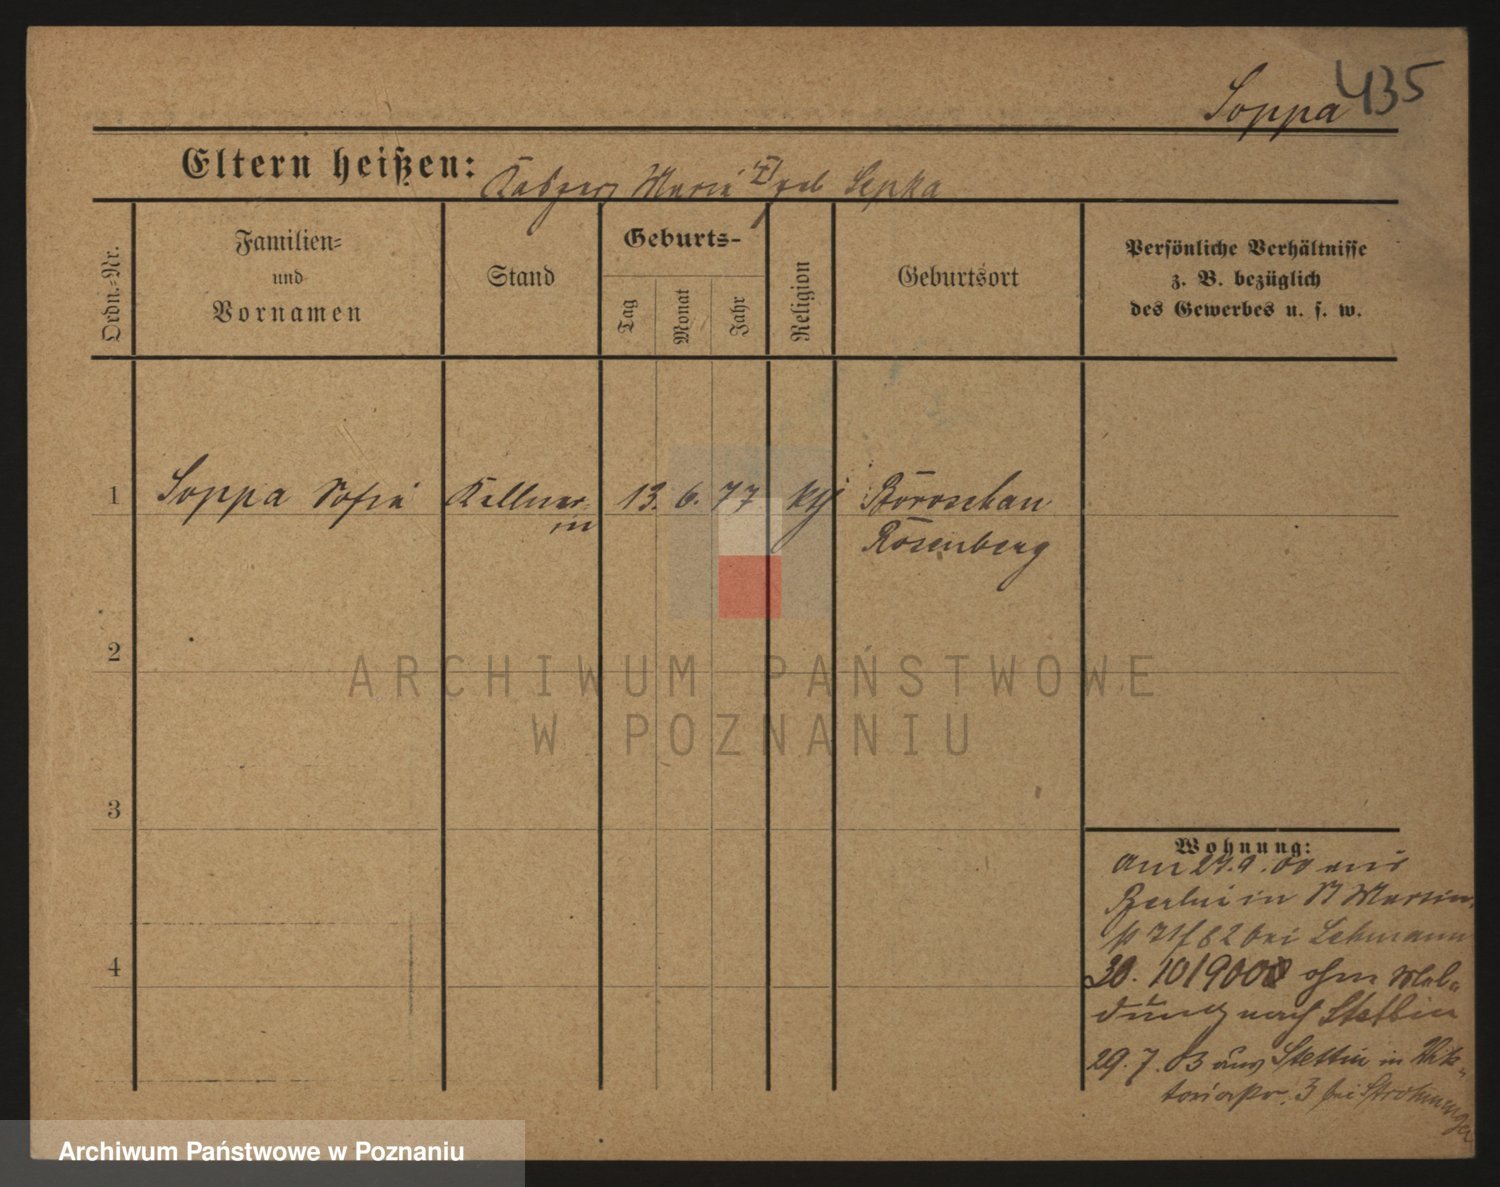 Soppa 435
Eltern heißen: Marie geb
Ordn.-Nr.
Familien-
und
Vornamen
Stand
Geburts-
Tag
Monat
Jahr
Religion
Geburtsort
Persönliche Verhältnisse
z. B. bezüglich
des Gewerbes u. s. w.
1 Soppa Sofie Kellner- 13. 6. 77 kth Boroschau
in Rosenberg
2
3
4
Wohnung:
Am 27.9.00 aus
Berlin in St Martin
bei Lehmann
30. 10 1900 ohne Mel-
dung nach Stettin
29. 7. 03 aus Stettin in Vik-
toriastr. 3 bei
ARCHIWUM PAŃSTWOWE
W POZNANIU
Archiwum Państwowe w Poznaniu